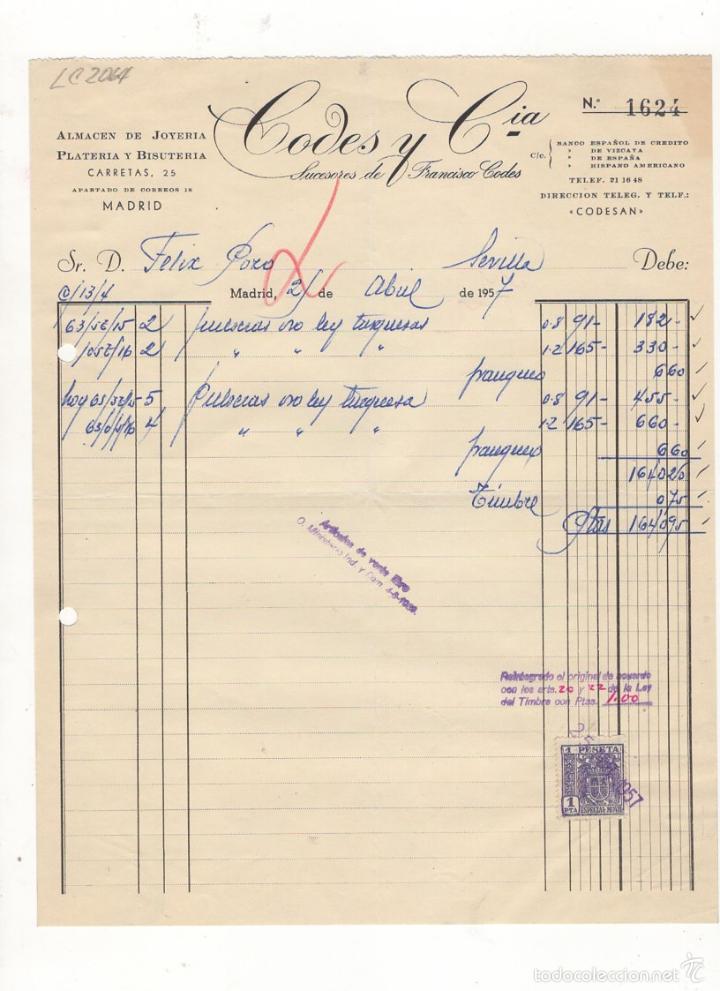 LC2064
Codes y Cia
Sucesores de Francisco Codes
N.º 1624
ALMACEN DE JOYERIA
PLATERIA Y BISUTERIA
CARRETAS, 25
APARTADO DE CORREOS 18
MADRID
C/c. BANCO ESPAÑOL DE CREDITO
» DE VIZCAYA
» DE ESPAÑA
» HISPANO AMERICANO
TELEF. 21 16 48
DIRECCION TELEG. Y TELF.:
«CODESAN»
Sr. D. Felix Pozo Sevilla Debe:
Madrid, 2 de Abril de 1957
13/4
63/56/15 2 pulseras oro ley turquesas 0.8 91- 182-
2 " " " 1.2 165- 330-
franqueo 660
hoy 5 Pulseras oro ley turquesa 0.8 91- 455-
4 " " " 1.2 165- 660-
franqueo 660
164020
Timbre 075
Ptas 164095
Artículos de venta libre
O. Ministerio Ind. y Com.
Reintegrado el original de acuerdo
con los arts. 20 y 22 de la Ley
del Timbre con Ptas. 1.00
1 PESETA
1 PTA
ESPECIAL MOVIL
1957
todocoleccion.net